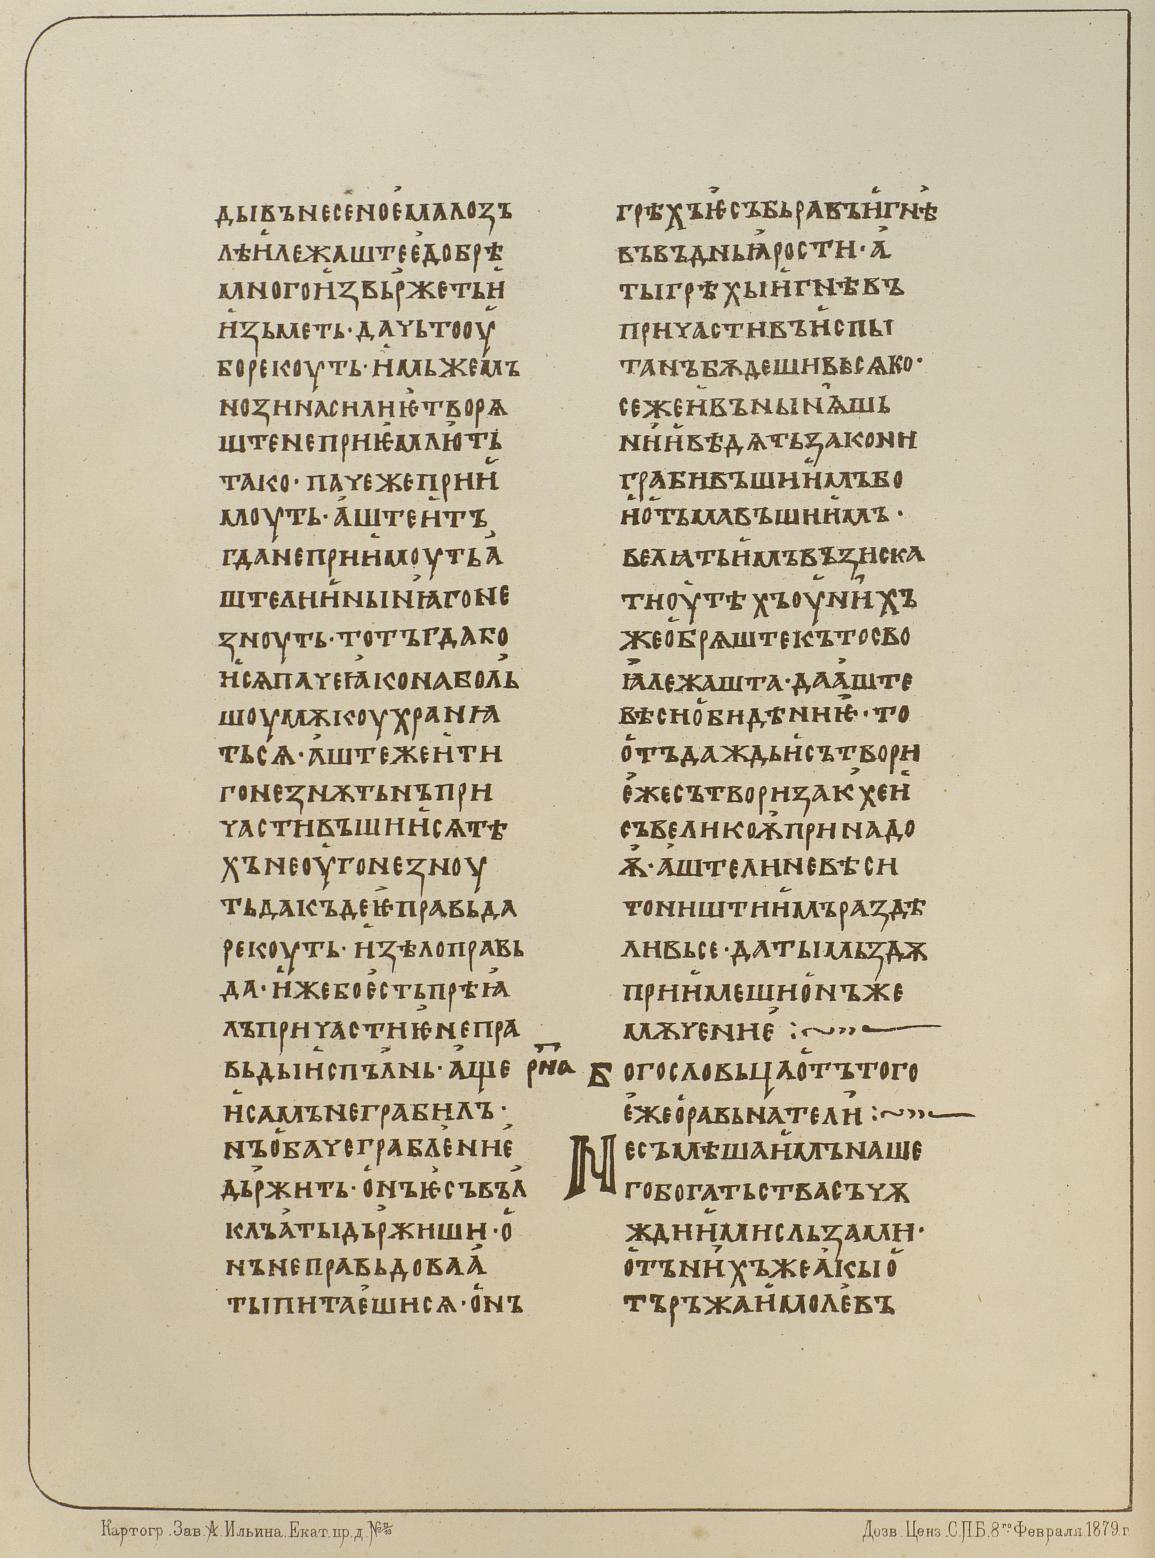 дꙑвънесеноемалозъ
лѣилежаштеедобрѣ
многоизвьржетьи
изьметь·дачьтооу
борекоуть·имьжемъ
нозинасилиѥтворѧ
штенеприѥмлють
тако·пачежеприи
моуть·аштеитъ
гданеприимоутьа
штелиинꙑнꙗгоне
зноуть·тотъгдабо
исѧпачеꙗконаболь
шоумѫкоухранꙗ
тьсѧ·аштежеити
гонезнѫтьнъпри
частивъшиисѧтѣ
хънеоугонезноу
тьдакъдеѥправьда
рекоуть·изѣлоправь
да·ижебоестьпрѣꙗ
лъпричастиѥнепра
вьдꙑиспълнь·аще
исамънеграбилъ·
нъобачеграбление
дьржить·онъѥсъвъл
клъатꙑдьржиши·о
нънеправьдоваа
тꙑпитаешисѧ·онъ
грѣхъѥсъбьравъигнѣ
въвъднꙑꙗрости·а
тꙑгрѣхꙑигнѣвъ
причастивъиспꙑ
танъбѫдешивьсѧко·
сежеивънꙑнѧшь
ниивѣдѧтьзакони
грабивъшиимъбо
иотьмавъшиимъ·
велѧтьимъвъзиска
тиоутѣхъоунихъ
жеобрѧштекътосво
ꙗлежашта·дааште
вѣсиобидѣниѥ·то
отъдаждьисътвори
ежесътворизакхеи
съвеликоѭпринадо
ѫ·аштелиневѣси
тоништиимъраздѣ
ливьсе·датꙑмьздѫ
приимешионъже
мѫчение :~»—
рн҃а Богословьцаотътого
ежеоравьнатели :~»—
Несъмѣшаимънаше
гобогатьствасъчѫ
ждиимисльзами·
отънихъжеакꙑо
търъжаимолевъ
Картогр. Зав. А. Ильина. Екат. пр. д.
Дозв. Ценз. С.П.Б. 8го Февраля 1879 г.